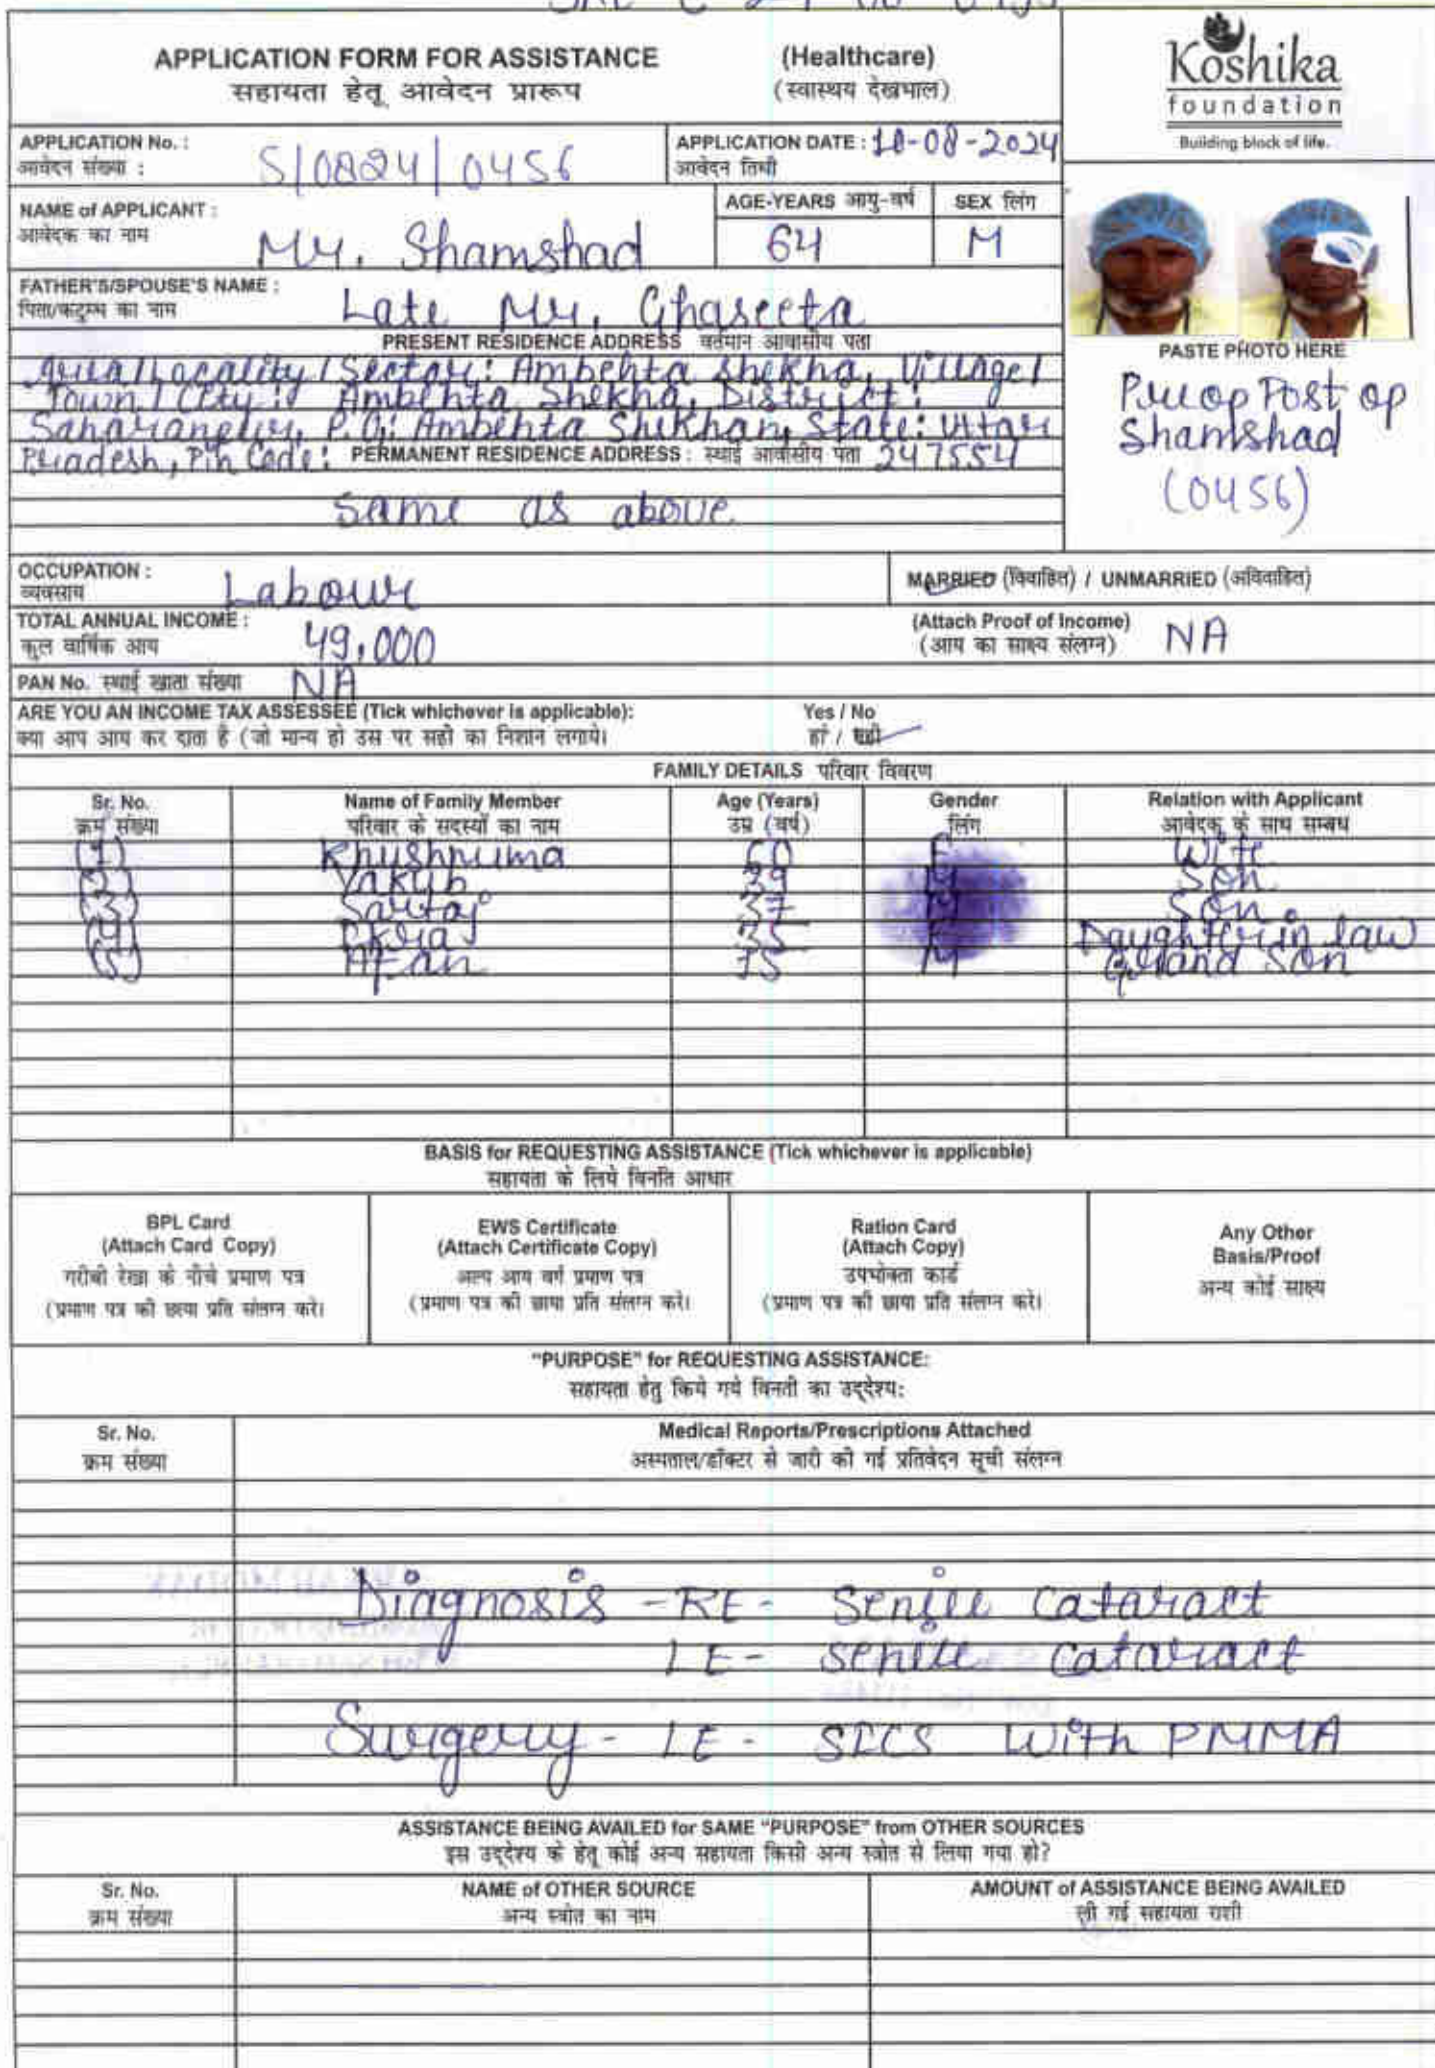 APPLICATION FORM FOR ASSISTANCE (Healthcare)
सहायता हेतू आवेदन प्रारूप (स्वास्थय देखभाल)
Koshika
foundation
Building block of life.
APPLICATION No. :
आवेदन संख्या : S/0824/0456
APPLICATION DATE : 10-08-2024
आवेदन तिथी
NAME of APPLICANT :
आवेदक का नाम Mr. Shamshad
AGE-YEARS आयु-वर्ष
64
SEX लिंग
M
FATHER'S/SPOUSE'S NAME :
पिता/कटुम्ब का नाम Late Mr. Ghaseeta
PRESENT RESIDENCE ADDRESS वर्तमान आवासीय पता
Area/Locality/Sector: Ambehta Shekha, Village/
Town/City: Ambehta Shekha, District:
Saharanpur, P.O: Ambehta Shekhan, State: Uttar
Pradesh, Pin Code: 247554
PERMANENT RESIDENCE ADDRESS : स्थाई आवासीय पता
Same as above
PASTE PHOTO HERE
Preop Post op
Shamshad
(0456)
OCCUPATION :
व्यवसाय Labour
MARRIED (विवाहित) / UNMARRIED (अविवाहित)
TOTAL ANNUAL INCOME :
कुल वार्षिक आय 49,000
(Attach Proof of Income)
(आय का साक्ष्य संलग्न) NA
PAN No. स्थाई खाता संख्या NA
ARE YOU AN INCOME TAX ASSESSEE (Tick whichever is applicable): Yes / No
क्या आप आय कर दाता है (जो मान्य हो उस पर सही का निशान लगाये। हां / नहीं
FAMILY DETAILS परिवार विवरण
Sr. No. Name of Family Member Age (Years) Gender Relation with Applicant
क्रम संख्या परिवार के सदस्यों का नाम उम्र (वर्ष) लिंग आवेदक के साथ सम्बध
(1) Khushnuma 60 F Wife
(2) Yakub 39 M Son
(3) Sartaj 37 M Son
(4) 35 F Daughter in law
(5) Afan 15 M Grand Son
BASIS for REQUESTING ASSISTANCE (Tick whichever is applicable)
सहायता के लिये विनति आधार
BPL Card
(Attach Card Copy)
गरीबी रेखा के नीचे प्रमाण पत्र
(प्रमाण पत्र की छाया प्रति संलग्न करे।
EWS Certificate
(Attach Certificate Copy)
अल्प आय वर्ग प्रमाण पत्र
(प्रमाण पत्र की छाया प्रति संलग्न करे।
Ration Card
(Attach Copy)
उपभोक्ता कार्ड
(प्रमाण पत्र की छाया प्रति संलग्न करे।
Any Other
Basis/Proof
अन्य कोई साक्ष्य
"PURPOSE" for REQUESTING ASSISTANCE:
सहायता हेतु किये गये विनती का उद्देश्य:
Sr. No. Medical Reports/Prescriptions Attached
क्रम संख्या अस्पताल/डॉक्टर से जारी की गई प्रतिवेदन सूची संलग्न
Diagnosis - RE - Senile cataract
LE - senile cataract
Surgery - LE - SICS With PMMA
ASSISTANCE BEING AVAILED for SAME "PURPOSE" from OTHER SOURCES
इस उद्देश्य के हेतू कोई अन्य सहायता किसी अन्य स्त्रोत से लिया गया हो?
Sr. No. NAME of OTHER SOURCE AMOUNT of ASSISTANCE BEING AVAILED
क्रम संख्या अन्य स्त्रोत का नाम ली गई सहायता राशी